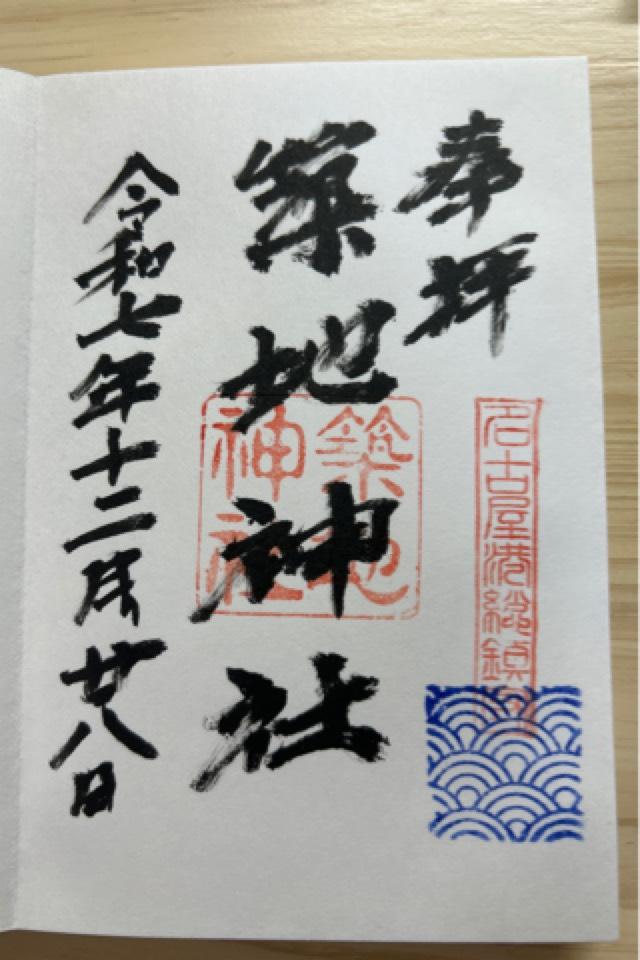 奉拝
名古屋港総鎮守
築地神社
築地神社
令和七年十二月廿八日